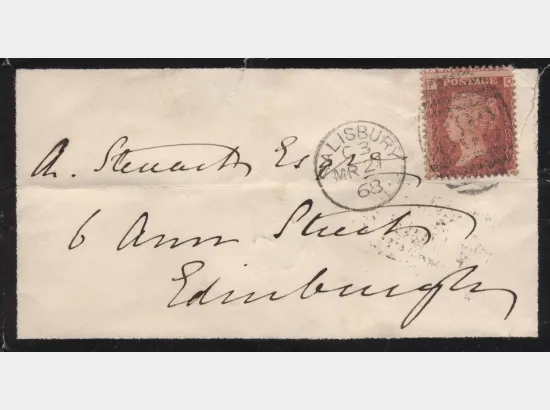 POSTAGE
SALISBURY
C 3
MR 27
63
A. Steuart Esqre
6 Ann Street
Edinburgh